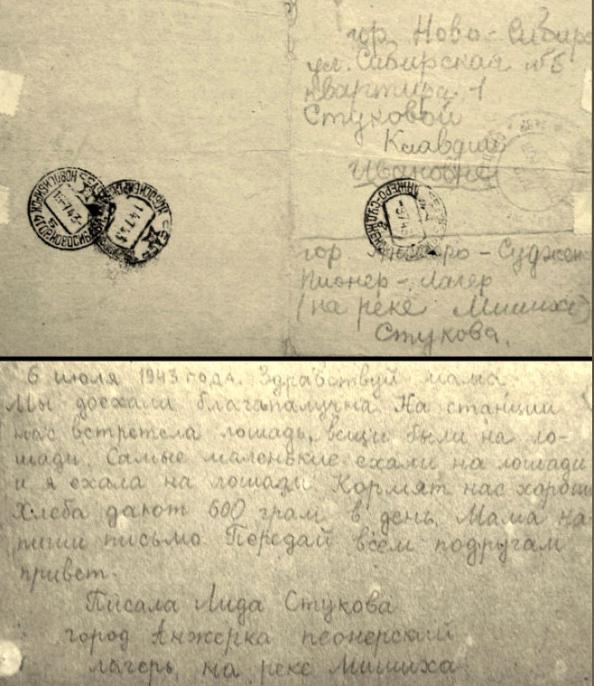 гор. Ново-Сибирс
ул. Сибирская №5
квартира 1
Стуковой
Клавдии
Ивановне
гор Анжеро-Суджен
Пионер-Лагер
(на реке Мишихе)
Стукова.
6 июля 1943 года. Здравствуй мама
Мы доехали благапалучна. На станции
нас встретела лошадь, вещи были на ло-
шади. Самые маленькие ехали на лошади
и я ехала на лошади. Кормят нас хорош
Хлеба дают 600 грам в день. Мама на-
пиши письмо Передай всем подругам
привет.
Писала Лида Стукова
город Анжерка пеонерский
лагерь, на реке Мишиха